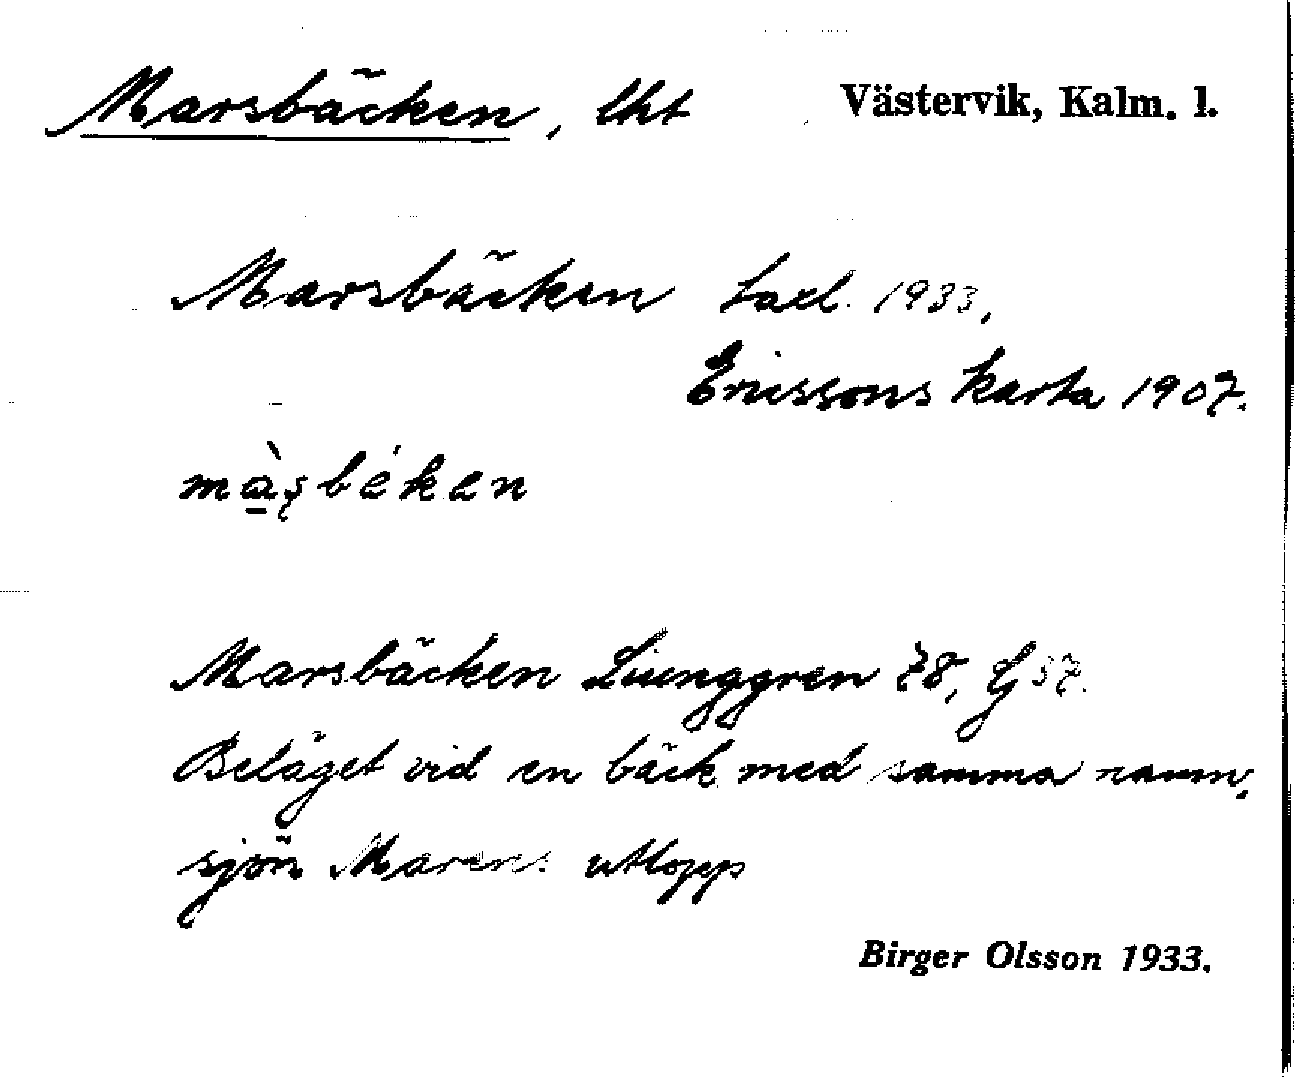 Marsbäcken, lht Västervik, Kalm. l.
Marsbäcken taxl. 1933,
Ericssons karta 1907.
mà̱ʂbékan
Marsbäcken Liunggren 78, G 37.
Beläget vid en bäck med samma namn,
sjön Marens utlopp
Birger Olsson 1933.